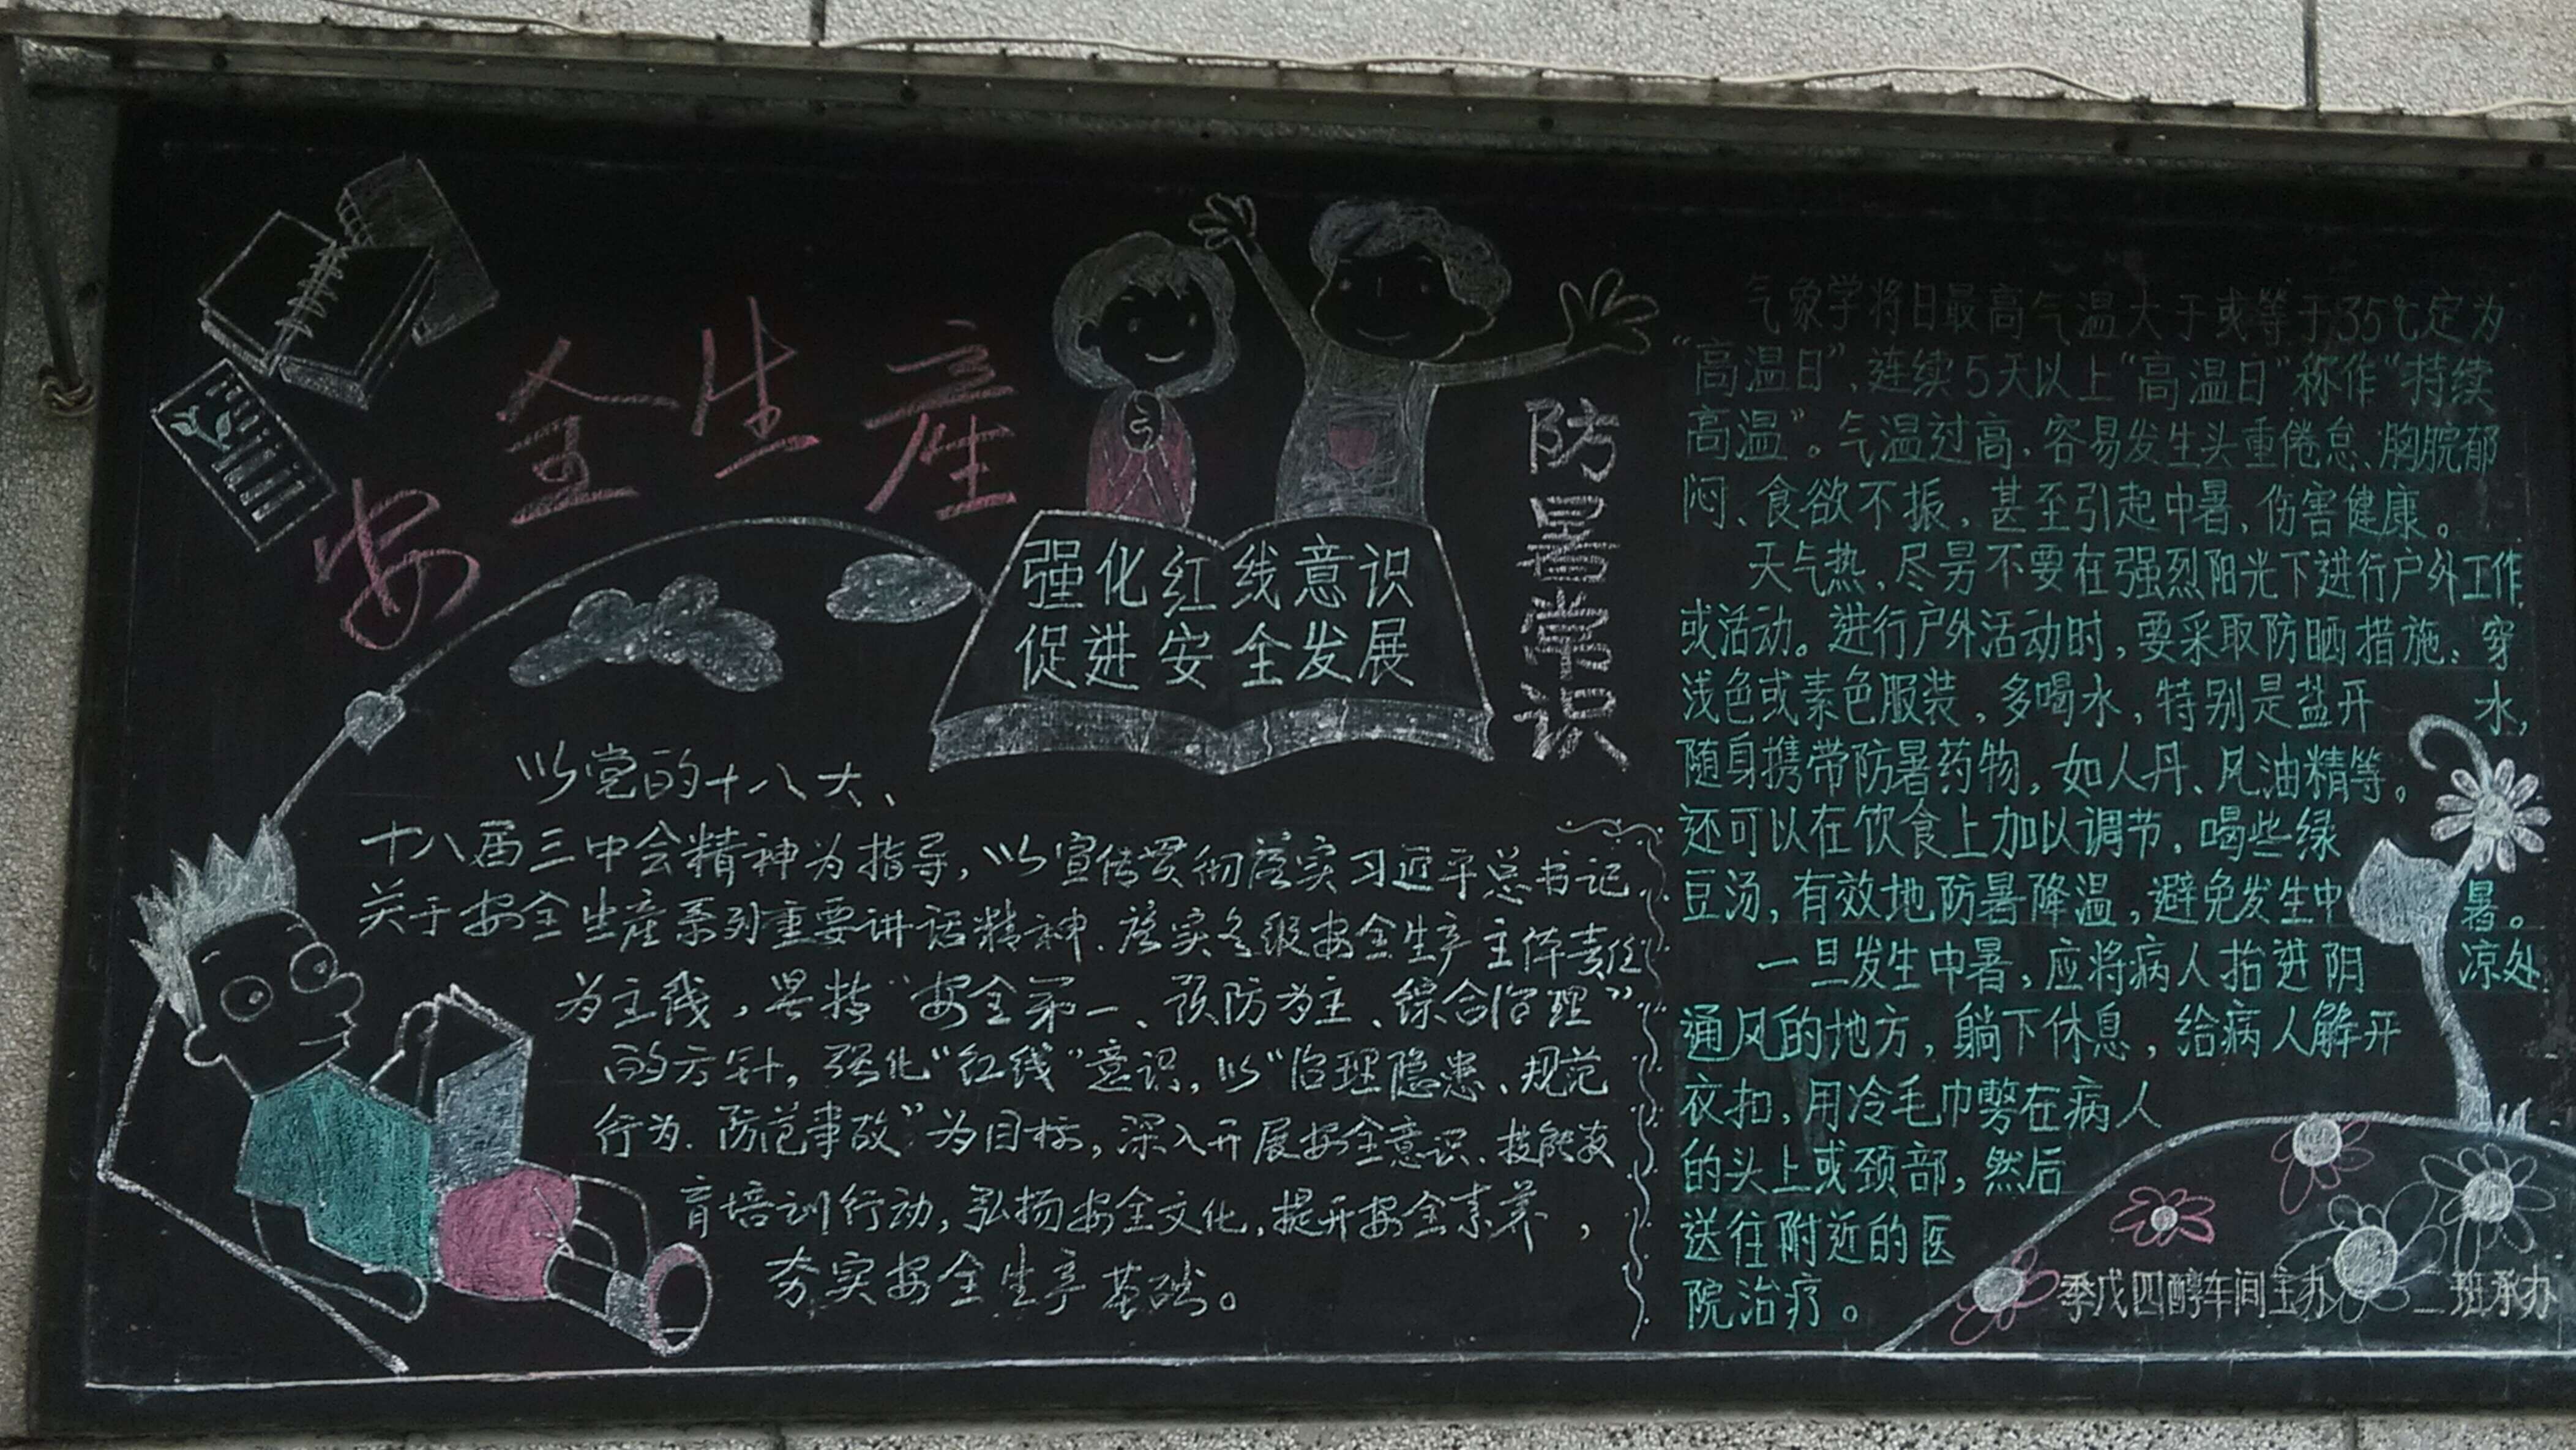 安全生产
强化红线意识
促进安全发展
以党的十八大、
十八届三中会精神为指导，以宣传贯彻落实习近平总书记
关于安全生产系列重要讲话精神、落实各级安全生产主体责任
为主线，坚持“安全第一、预防为主、综合治理”
的方针，强化“红线”意识，以“治理隐患、规范
行为、防范事故”为目标，深入开展安全意识、技能教
育培训行动，弘扬安全文化，提升安全素养，
夯实安全生产基础。
防暑常识
气象学将日最高气温大于或等于35℃定为
“高温日”，连续5天以上“高温日”称作“持续
高温”。气温过高，容易发生头重倦怠、胸脘郁
闷、食欲不振，甚至引起中暑，伤害健康。
天气热，尽另不要在强烈阳光下进行户外工作
或活动。进行户外活动时，要采取防晒措施：穿
浅色或素色服装，多喝水，特别是盐开水，
随身携带防暑药物，如人丹、风油精等。
还可以在饮食上加以调节，喝些绿
豆汤，有效地防暑降温，避免发生中暑。
一旦发生中暑，应将病人抬进阴凉处
通风的地方，躺下休息，给病人解开
衣扣，用冷毛巾在病人
的头上或颈部，然后
送往附近的医
院治疗。
季戊四醇车间主办 二班承办